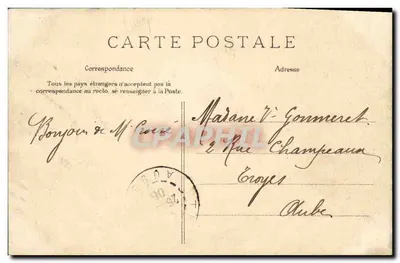 CARTE POSTALE
Correspondance
Tous les pays étrangers n'acceptent pas la
correspondance au recto, se renseigner à la Poste.
Adresse
Bonjour de Mr
Madame Vve Gommeret
2 Rue Champeaux
Troyes
Aube
CPARAMA
AUBE